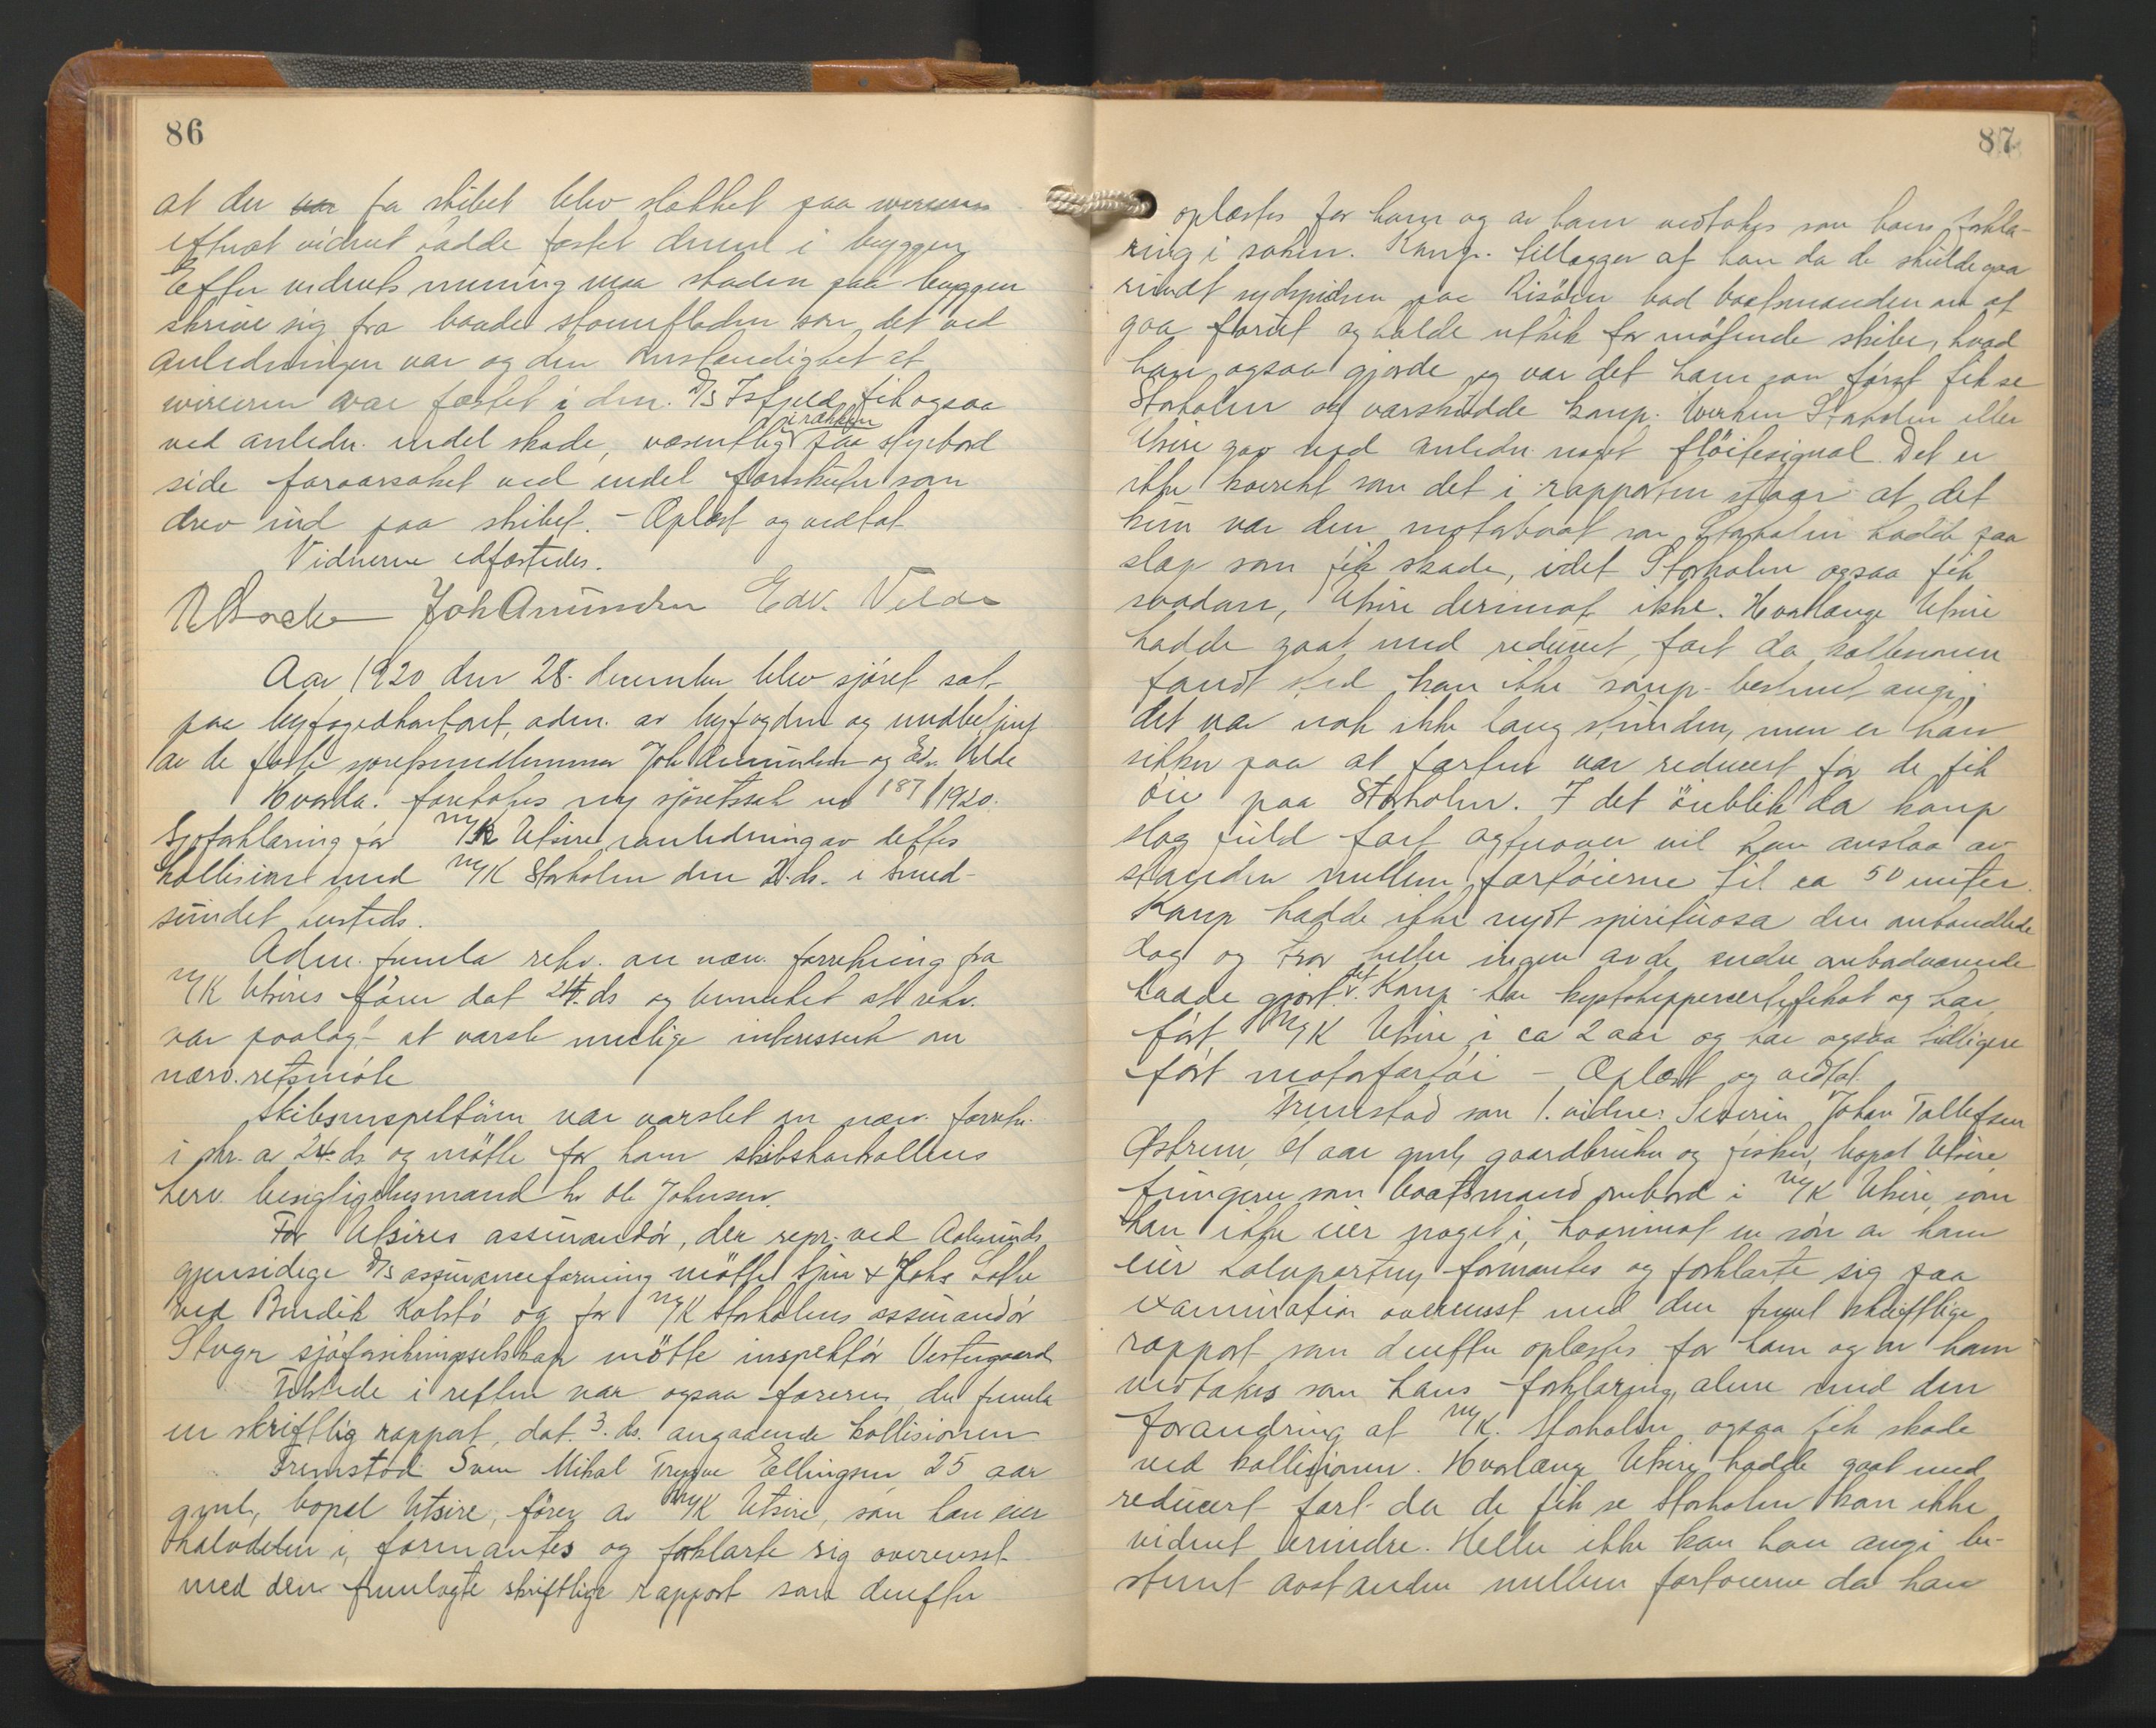 86
at der var fra skibet blev slakket paa wireren
efterat vidnet hadde fæstet denne i bryggen
Efter vidnets mening maa skaden paa bryggen
skrive sig fra baade stormfloden som det ved
anledningen var og den omstændighet at
wireren var fæstet i den. D/S Isfjell fik ogsaa
ved anledn. endel skade, væsentlig i rækken paa styrbord
side foraarsaket ved endel forskuter som
drev ind paa skibet. - Oplæst og vedtat
Vidnerne edfæstedes.
Joh Amundsen Edv. Velde
Aar 1920 den 28. december blev sjøret sat
paa byfogedkontoret, adm. av byfogden og medbetjent
av de faste sjøretsmedlemmer Joh Amundsen og Edv. Velde
Hvorda: foretokes ny sjøretssak no 187/1920.
Sjøforklaring for M/K Utsire i anledning av dettes
kollision med M/K Storholm den 2. ds. i Smed-
sundet hersteds.
Adm. fremla rekv. om nærv. forretning fra
M/K Utsires fører dat 24. ds og bemerket at rekv.
var paalagt at varsle mulige interesserte om
nærv. retsmøte
Skibsinspektøren var varslet om nærv. forretn.
i skr. av 24. ds. og møtte for ham skibskontrollens
herv. besigtigelsesmand hr Ole Johnsen.
For Utsires assurandør, der repr. ved Aalesunds
gjensidige D/S assuranceforening møtte Johs Lothe
ved Bendik Kolstø og for M/K Storholms assurandør
Stvgr sjøforsikringsselskap møtte inspektør Vestergaard
Tilstede i retten var ogsaa føreren, der fremla
en skriftlig rapport, dat. 3. ds. angaaende kollisionen
Fremstod Sven Mikal Trygve Ellingsen 25 aar
gml, bopæl Utsire, fører av M/K Utsire, som han eier
halvdelen i, formantes og forklarte sig overensst.
med den fremlagte skriftlige rapport som derefter
87
oplæstes for ham og av ham vedtokes som hans forkla-
ring i saken. Komp. tillægger at han da de skulde gaa
rundt sydspidsen paa Risøen bad baatsmanden om at
gaa forut og holde utkik for møtende skibe, hvad
han ogsaa gjorde og var det ham som først fik se
Storholm og varskudde komp. Hverken Storholm eller
Utsire gav ved anledn. noget fløitesignal. Det er
ikke korrekt som det i rapporten staar at det
kun var den motorbaat som Storholm hadde paa
slæp som fik skade, idet Storholm ogsaa fik
saadan, Utsire derimot ikke. Hvorlænge Utsire
hadde gaat med reducert fart da kollisionen
fandt sted kan ikke komp. bestemt angi,
det var nok ikke lang stunden, men er han
sikker paa at farten var reducert før de fik
øie paa Storholm. I det øieblik da komp
slog fuld fart agterover vil han anslaa av-
standen mellem fartøierne til ca 50 meter.
Komp hadde ikke nydt spirituosa den omhandlede
dag og tror heller ingen av de andre ombordværende
hadde gjort det. Komp. har kystskippercertifikat og har
ført M/K Utsire i ca 2 aar og har ogsaa tidligere
ført motorfartøi - Oplæst og vedtat.
Fremstod som 1. vidne: Severin Johan Tollefsen
Østrem, 61 aar gml, gaardbruker og fisker, bopæl Utsire,
fungerer som baatsmand ombord i M/K Utsire, som
han ikke eier noget i, hvorimot en søn av ham
eier halvparten, formantes og forklarte sig paa
examination overensst med den freml. skriftlige
rapport som derefter oplæstes for ham og av ham
vedtokes som hans forklaring, alene med den
forandring at M/K. Storholm ogsaa fik skade
ved kollisionen. Hvorlænge Utsire hadde gaat med
reducert fart da de fik se Storholm kan ikke
vidnet erindre. Heller ikke kan han angi be-
stemt avstanden mellem fartøierne da han